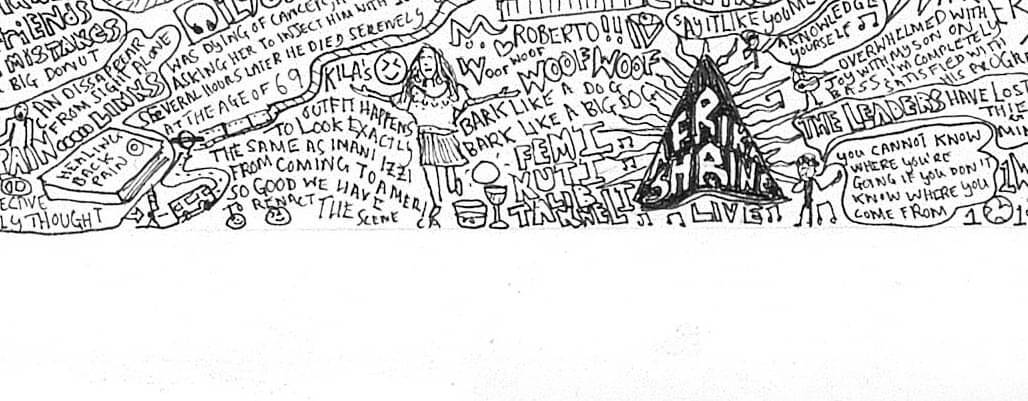 FRIENDS
MISTAKES
BIG DONUT
AN DISSAPEAR
FROM SIGHT ALONE
LINKS
PAIN
HEALING
BACK
PAIN
ECTIVE
LY THOUGHT
WAS DYING OF CANCER, H
ASKING HER TO INJECT HIM WITH
SEVERAL HOURS LATER HE DIED SERENELY
AT THE AGE OF 69
KILA'S
OUTFIT HAPPENS
TO LOOK EXACTLY
THE SAME AS INANI IZZI
FROM COMING TO AMERI
SO GOOD WE HAVE
REINACT THE
SCENE
ROBERTO!!!
WOOF WOOF
WOOF WOOF
BARK LIKE A DOG
BARK LIKE A BIG DOG
FEMI
KUTI
LIVE
SAY IT LIKE YOU ME
KNOWLEDGE
YOURSELF
OVERWHELMED WITH
JOY WITH MY SON ON
BASS I'M COMPLETELY
SATISFIED WITH
HIS PROGR
THE LEADERS HAVE LOST
YOU CANNOT KNOW
WHERE YOU'RE
GOING IF YOU DON'T
KNOW WHERE YOU
COME FROM